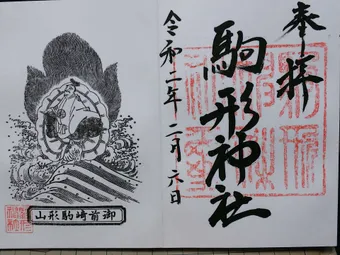 奉拝
駒形神社
令和二年二月六日
御前崎駒形山